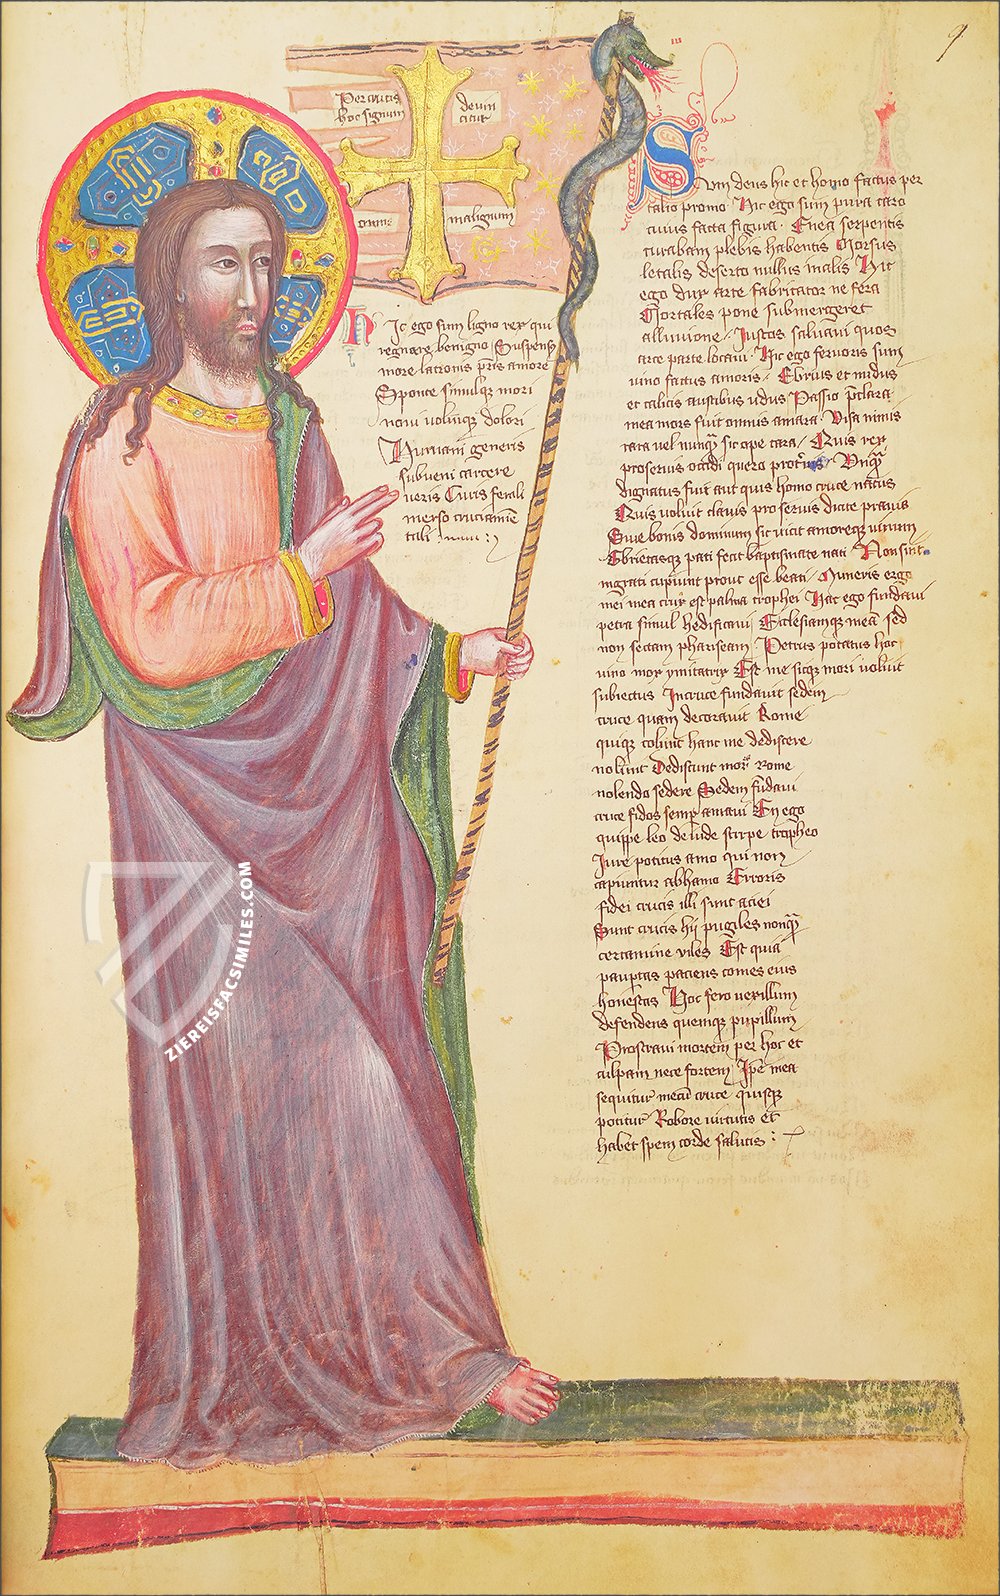 9
Per crucis
hoc signum
devin
citur
omne
malignum
Hic ego sum ligno rex qui
regnare benigno Suspensꝫ
more latronis pr̄is amore
Sponte simulqꝫ mori
novi voluiqꝫ dolori
Humani generis
subveni carcere
veris Curis ferali
merso cruciamīe
tali
Sum deus hic et homo factus per
talio promo Hic ego sum pura caro
cuius facta figura Enea serpentis
curabam plebis habentis Morsus
letalis deserto nullius malis Hic
ego dux arte fabricator ne fera
Mortales pone submergeret
alluvione Iustos salvavi quos
arce parte locavi Hic ego fervoris sum
vino factus amoris Ebrius et nudus
et calicis austibus udus Passio p̄clara
mea mors fuit omnis amara Visa nimis
cara vel nunqꝫ sic ope cara Quis rex
proservis occidi quero Unqꝫ
dignatus fuit aut quis homo cruce natus
Quis voluit clavis pro servis dicite pravis
Sive bonis dominum sic vicit amoreqꝫ virum
Ebrietasqꝫ pati fecit baptismate nati Non sint
ingrati cupiunt prout esse beati Muneris ergo
mei mea crux est palma trophei Hac ego fundavi
petra simul hedificavi Ecclesiamqꝫ meā sed
non sectam phariseam Petrus potatus hoc
vino mox ymitatrix Est me sicqꝫ mori voluit
subiectus Incruce fundavit sedem
cruce quam decoravit Rome
quiqꝫ colunt hanc me dediscere
nolunt Dediscunt mor̄ Rome
nolendo sedere Sedem fūdavi
cruce fidos semp amavi En ego
quippe leo de iude stirpe tropheo
Iure potitus amo qui non
capiuntur abhamo Erroris
fidei crucis illi sunt aciei
Sunt crucis hij pugiles nonqꝫ
certamine viles Est quia
paupertas paciens comes eius
honestas Hoc fero vexillum
defendens quemqꝫ pupillum
Prostravi mortem per hoc et
culpam nece fortem Ipse mea
sequitur mecū cruce quisqꝫ
potitur Robore virtutis et
habet spem corde salutis
ZIEREISFACSIMILES.COM